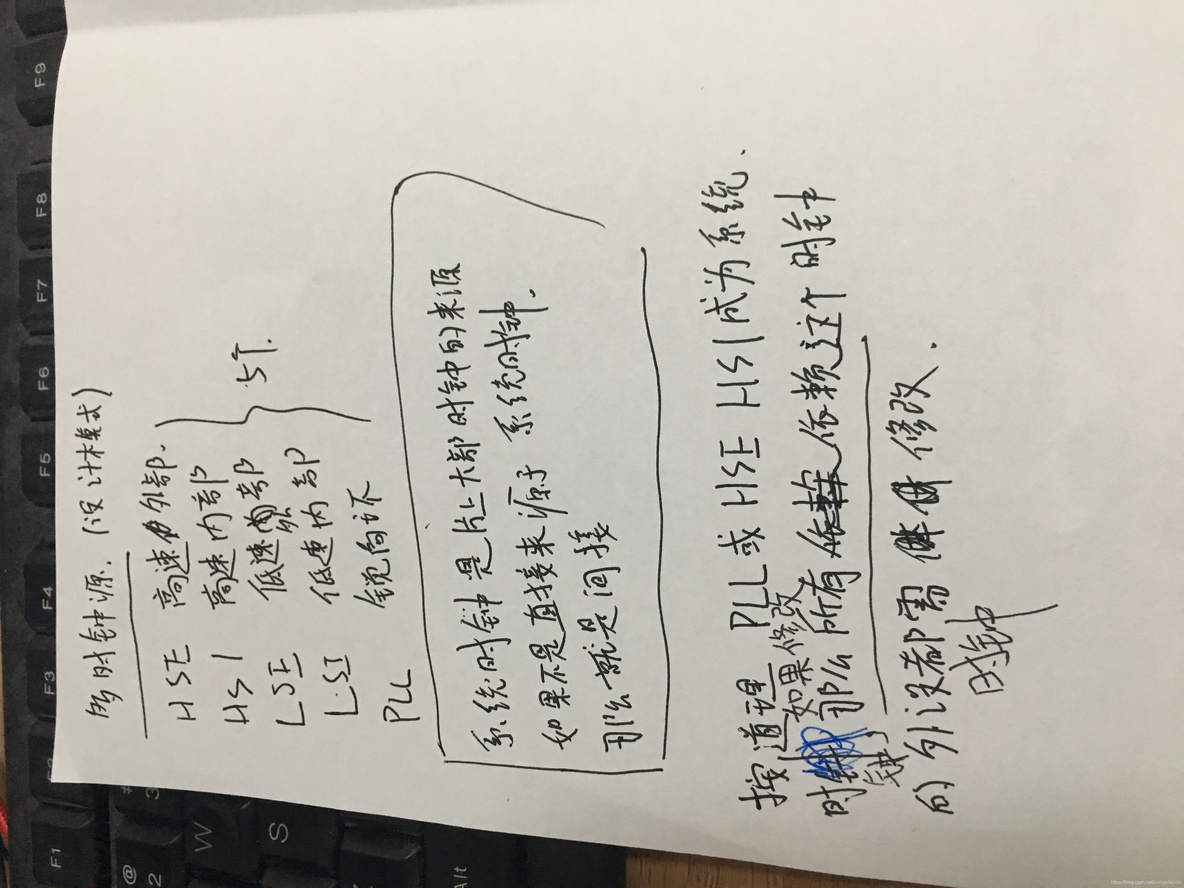 多时钟源. (设计模式)
HSE 高速外部.
HSI 高速内部
LSE 低速外部
LSI 低速内部
PLL 锁向环
5个.
系统时钟是片上大部时钟的来源
如果不是直接来源于 系统时钟.
那么就是间接
按道理 PLL或HSE HSI成为系统.
时钟, 如果修改
那么所有依赖这个时钟
的外设都需 修改.
时钟
F1
F2
F3
F4
F5
F6
F7
F8
F9
@
2
#
3
W
S
Alt